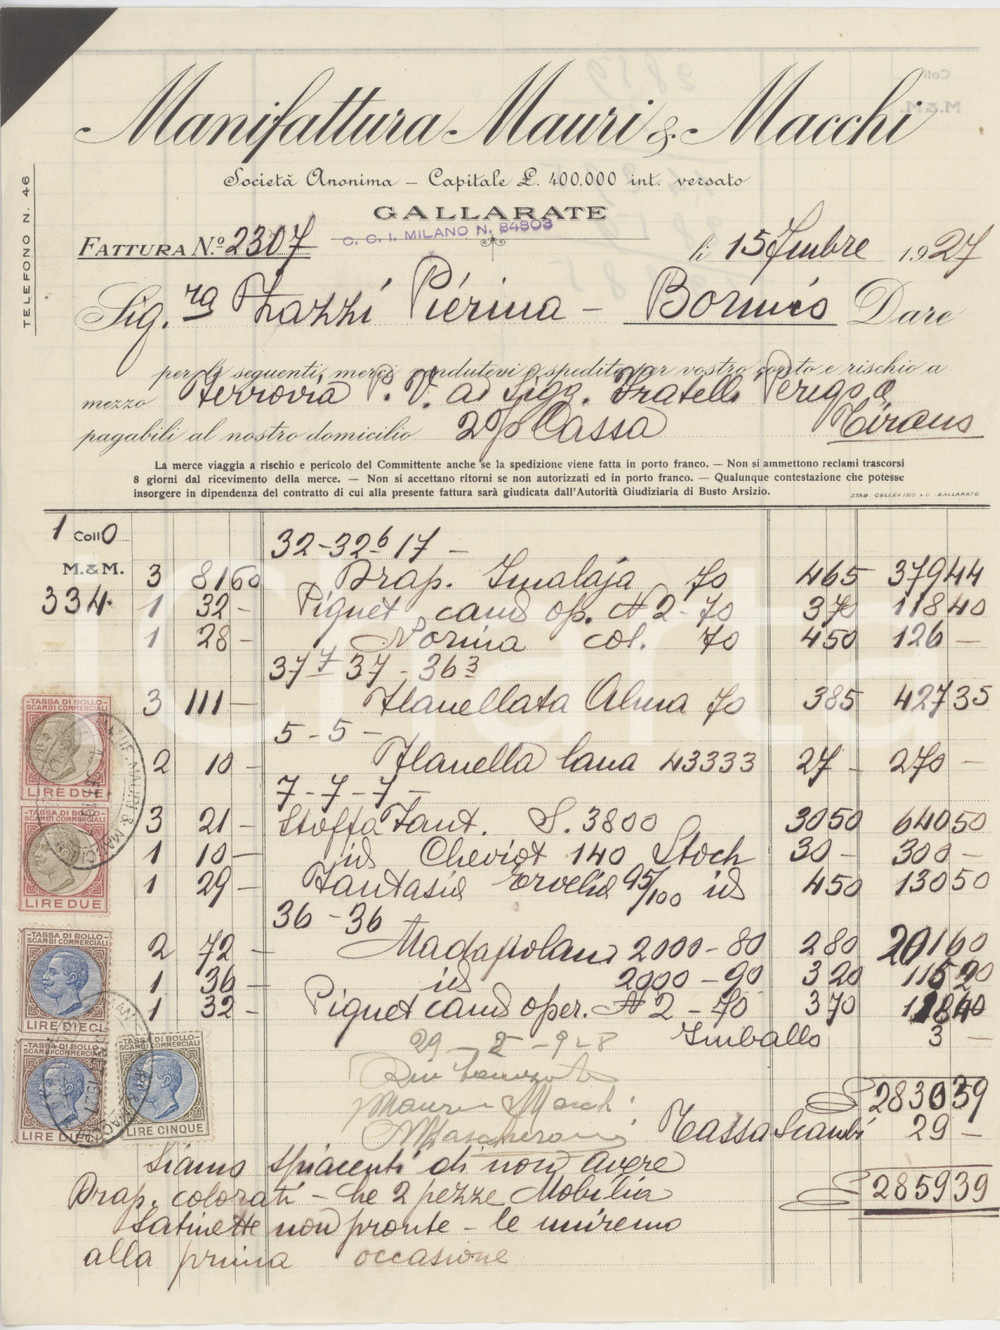 Manifattura Mauri & Macchi
Società Anonima — Capitale £. 400.000 int. versato
GALLARATE
C. C. I. MILANO N. 84803
TELEFONO N. 46
FATTURA N.º 2307
li 15 7mbre 1927
Sig.ra Zazzi Pierina — Bormio Dare
per le seguenti merci vendutevi e spedite per vostro conto e rischio a
mezzo ferrovia P. V. ai Sigg. Fratelli Perego a
pagabili al nostro domicilio 2% Cassa Tirano
La merce viaggia a rischio e pericolo del Committente anche se la spedizione viene fatta in porto franco. — Non si ammettono reclami trascorsi
8 giorni dal ricevimento della merce. — Non si accettano ritorni se non autorizzati ed in porto franco. — Qualunque contestazione che potesse
insorgere in dipendenza del contratto di cui alla presente fattura sarà giudicata dall'Autorità Giudiziaria di Busto Arsizio.
1 Collo
M.&M.
334
32-32⁶ 17 —
3 81 60 Drap. Imalaja 70 4 65 379 44
1 32 — Piquet cand op. N 2 - 70 3 70 118 40
1 28 — Norina col. 70 4 50 126 —
37⁷ 37 - 36³
3 111 — Flanellata Alma 70 3 85 427 35
5 - 5 —
2 10 — Flanella lana 43333 27 — 270 —
7 - 7 - 7 —
3 21 — Stoffa Fant. S. 3800 30 50 640 50
1 10 — id Cheviot 140 Stoch 30 — 300 —
1 29 — Fantasia 95/100 id 4 50 130 50
36 - 36
2 72 — Madapolam 2000 - 80 2 80 201 60
1 36 — id 2000 - 90 3 20 115 20
1 32 — Piquet cand oper. N 2 - 70 3 70 118 40
Imballo 3 —
29 - 2 - 928
£ 2830 39
Mauri Macchi
Tassa Scambi 29 —
£ 2859 39
Siamo spiacenti di non avere
Drap. colorati - he 2 pezze Mobilia
Satinette non pronte - le uniremo
alla prima occasione
TASSA DI BOLLO
SCAMBI COMMERCIALI
LIRE DUE
TASSA DI BOLLO
SCAMBI COMMERCIALI
LIRE DUE
TASSA DI BOLLO
SCAMBI COMMERCIALI
LIRE DIECI
TASSA DI BOLLO
SCAMBI COMMERCIALI
TASSA DI BOLLO
SCAMBI COMMERCIALI
LIRE CINQUE